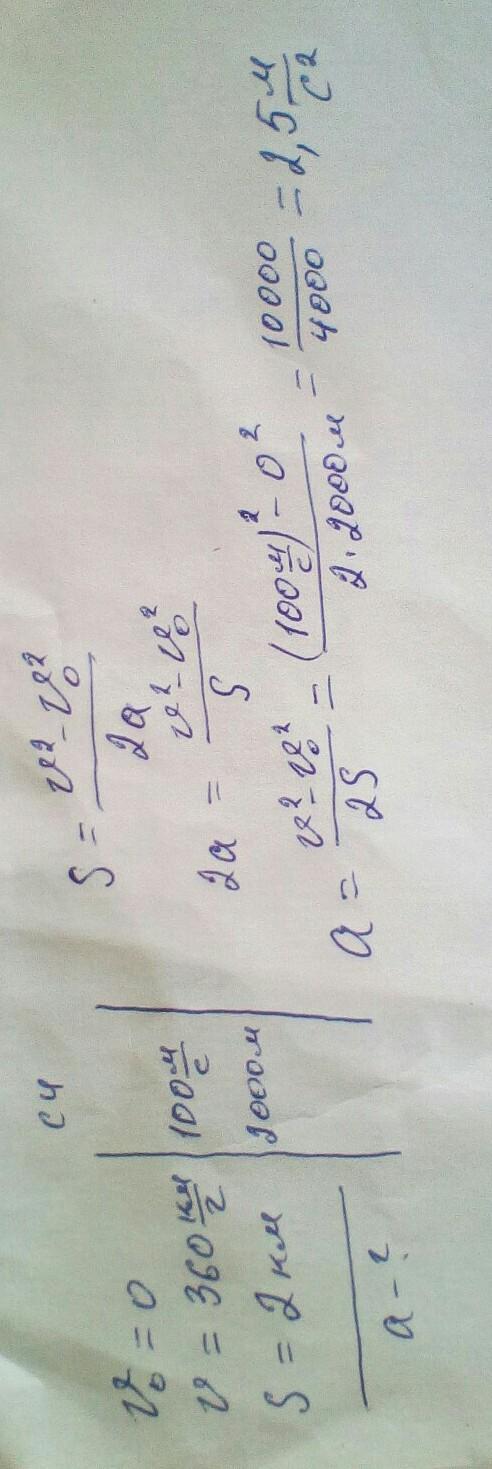 СИ
v₀ = 0
v = 360 км/г 100 м/с
S = 2 км 2000 м
a – ?
S = (v² - v₀²)/2a
2a = (v² - v₀²)/S
a = (v² - v₀²)/2S = ((100 м/с)² - 0²)/(2·2000 м) = 10000/4000 = 2,5 м/с²